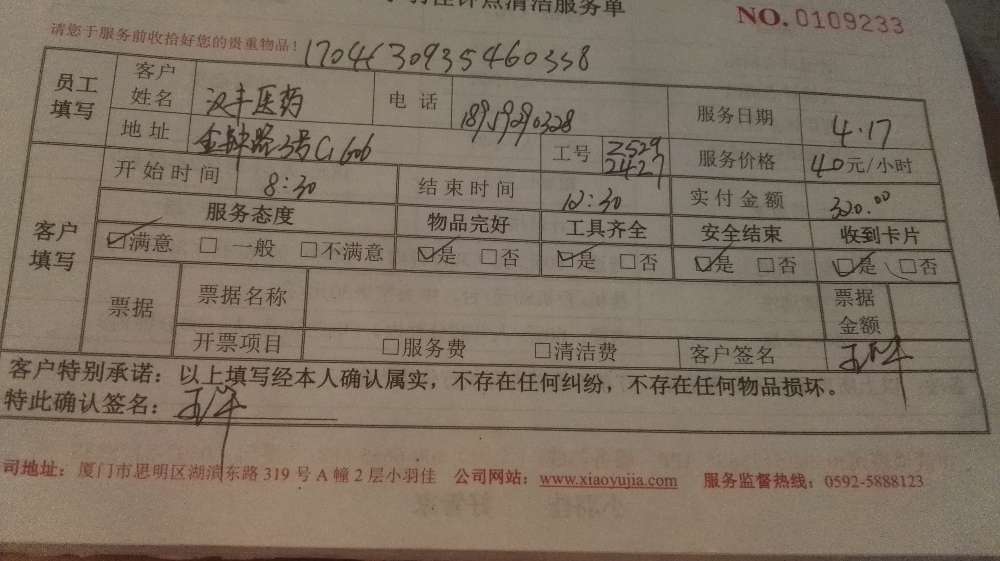 羽佳钟点清洁服务单
NO. 0109233
请您于服务前收拾好您的贵重物品！ 1704130935460358
员工填写 客户姓名 汉丰医药 电话 18959290328 服务日期 4.17
地址 路3号C1606 工号 2529 2427 服务价格 40元/小时
客户填写 开始时间 8:30 结束时间 12:30 实付金额 320.00
服务态度 物品完好 工具齐全 安全结束 收到卡片
☑满意 □一般 □不满意 ☑是 □否 ☑是 □否 ☑是 □否 ☑是 □否
票据 票据名称 票据金额
开票项目 □服务费 □清洁费 客户签名
客户特别承诺：以上填写经本人确认属实，不存在任何纠纷，不存在任何物品损坏。
特此确认签名：
司地址：厦门市思明区湖滨东路 319 号 A 幢 2 层小羽佳 公司网站：www.xiaoyujia.com 服务监督热线：0592-5888123